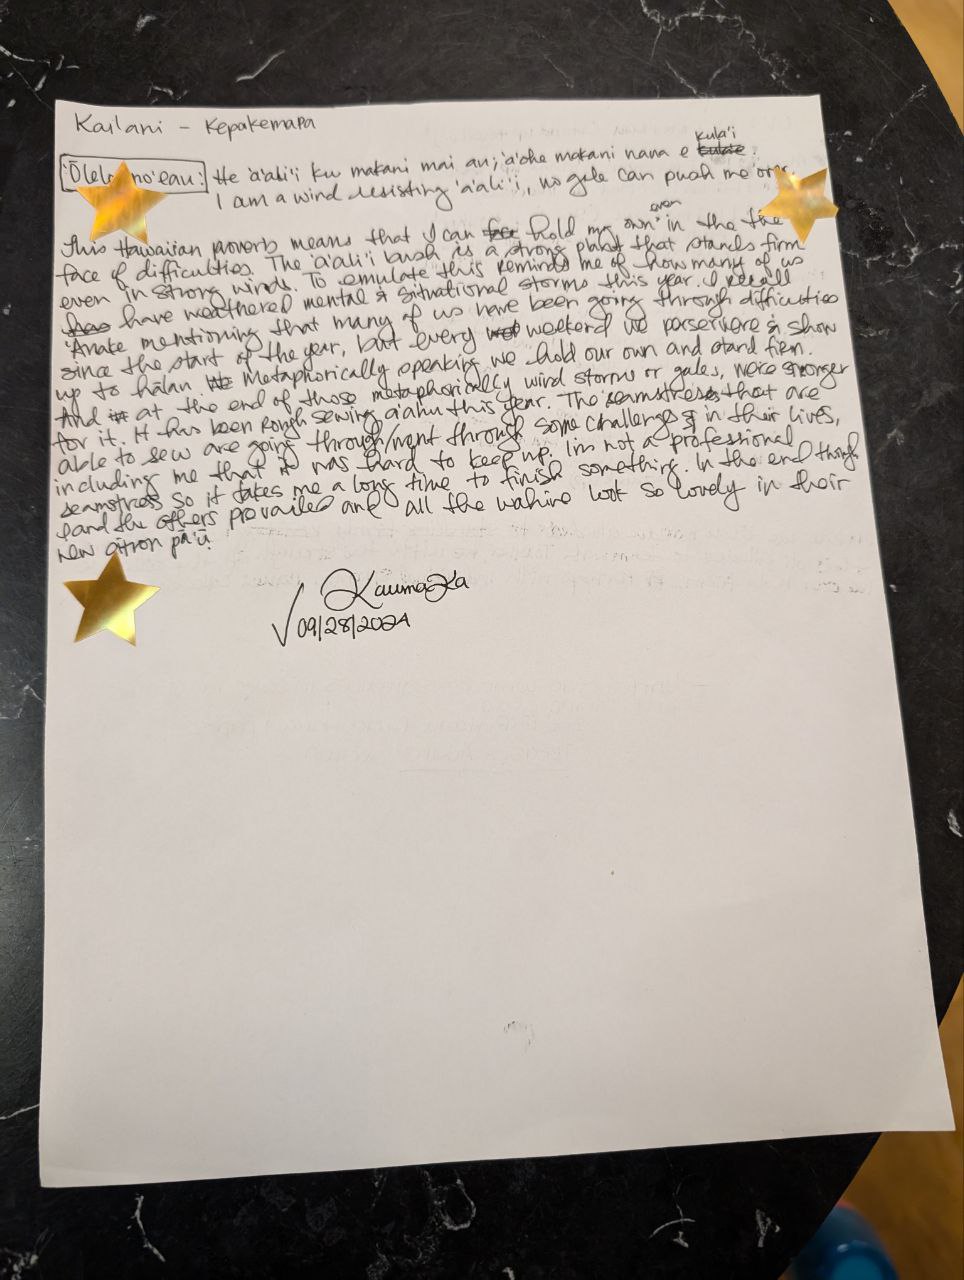 Kailani - Kepakemapa
'Ōlelo no'eau: He 'a'ali'i ku makani mai au; 'a'ohe makani nana e kula'i.
I am a wind resisting 'a'ali'i, no gale can push me over.
This Hawaiian proverb means that I can hold my own even in the the
face of difficulties. The 'a'ali'i bush is a strong plant that stands firm
even in strong winds. To emulate this reminds me of how many of us
have weathered mental & situational storms this year. I recall
'Anake mentioning that many of us have been going through difficulties
since the start of the year, but every weekend we perservere & show
up to hālau. Metaphorically speaking we hold our own and stand firm.
And at the end of those metaphorically wind storms or gales, we're stronger
for it. It has been rough sewing a'ahu this year. The seamstress that are
able to sew are going through/went through some challenges in their lives,
including me that it was hard to keep up. I'm not a professional
seamstress so it takes me a long time to finish something. In the end though
I and the others prevailed and all the wahine look so lovely in their
new citron pā'ū.
KaumaKa
√ 09/28/2024